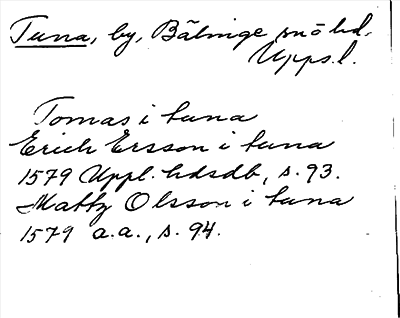 Tuna, by, Bälinge sn o hd,
Upps.l.
Tomas i tuna
Erich Ersson i tuna
1579 Uppl. hdsdb, s. 93.
Mattz Olsson i tuna
1579 a.a., s. 94.